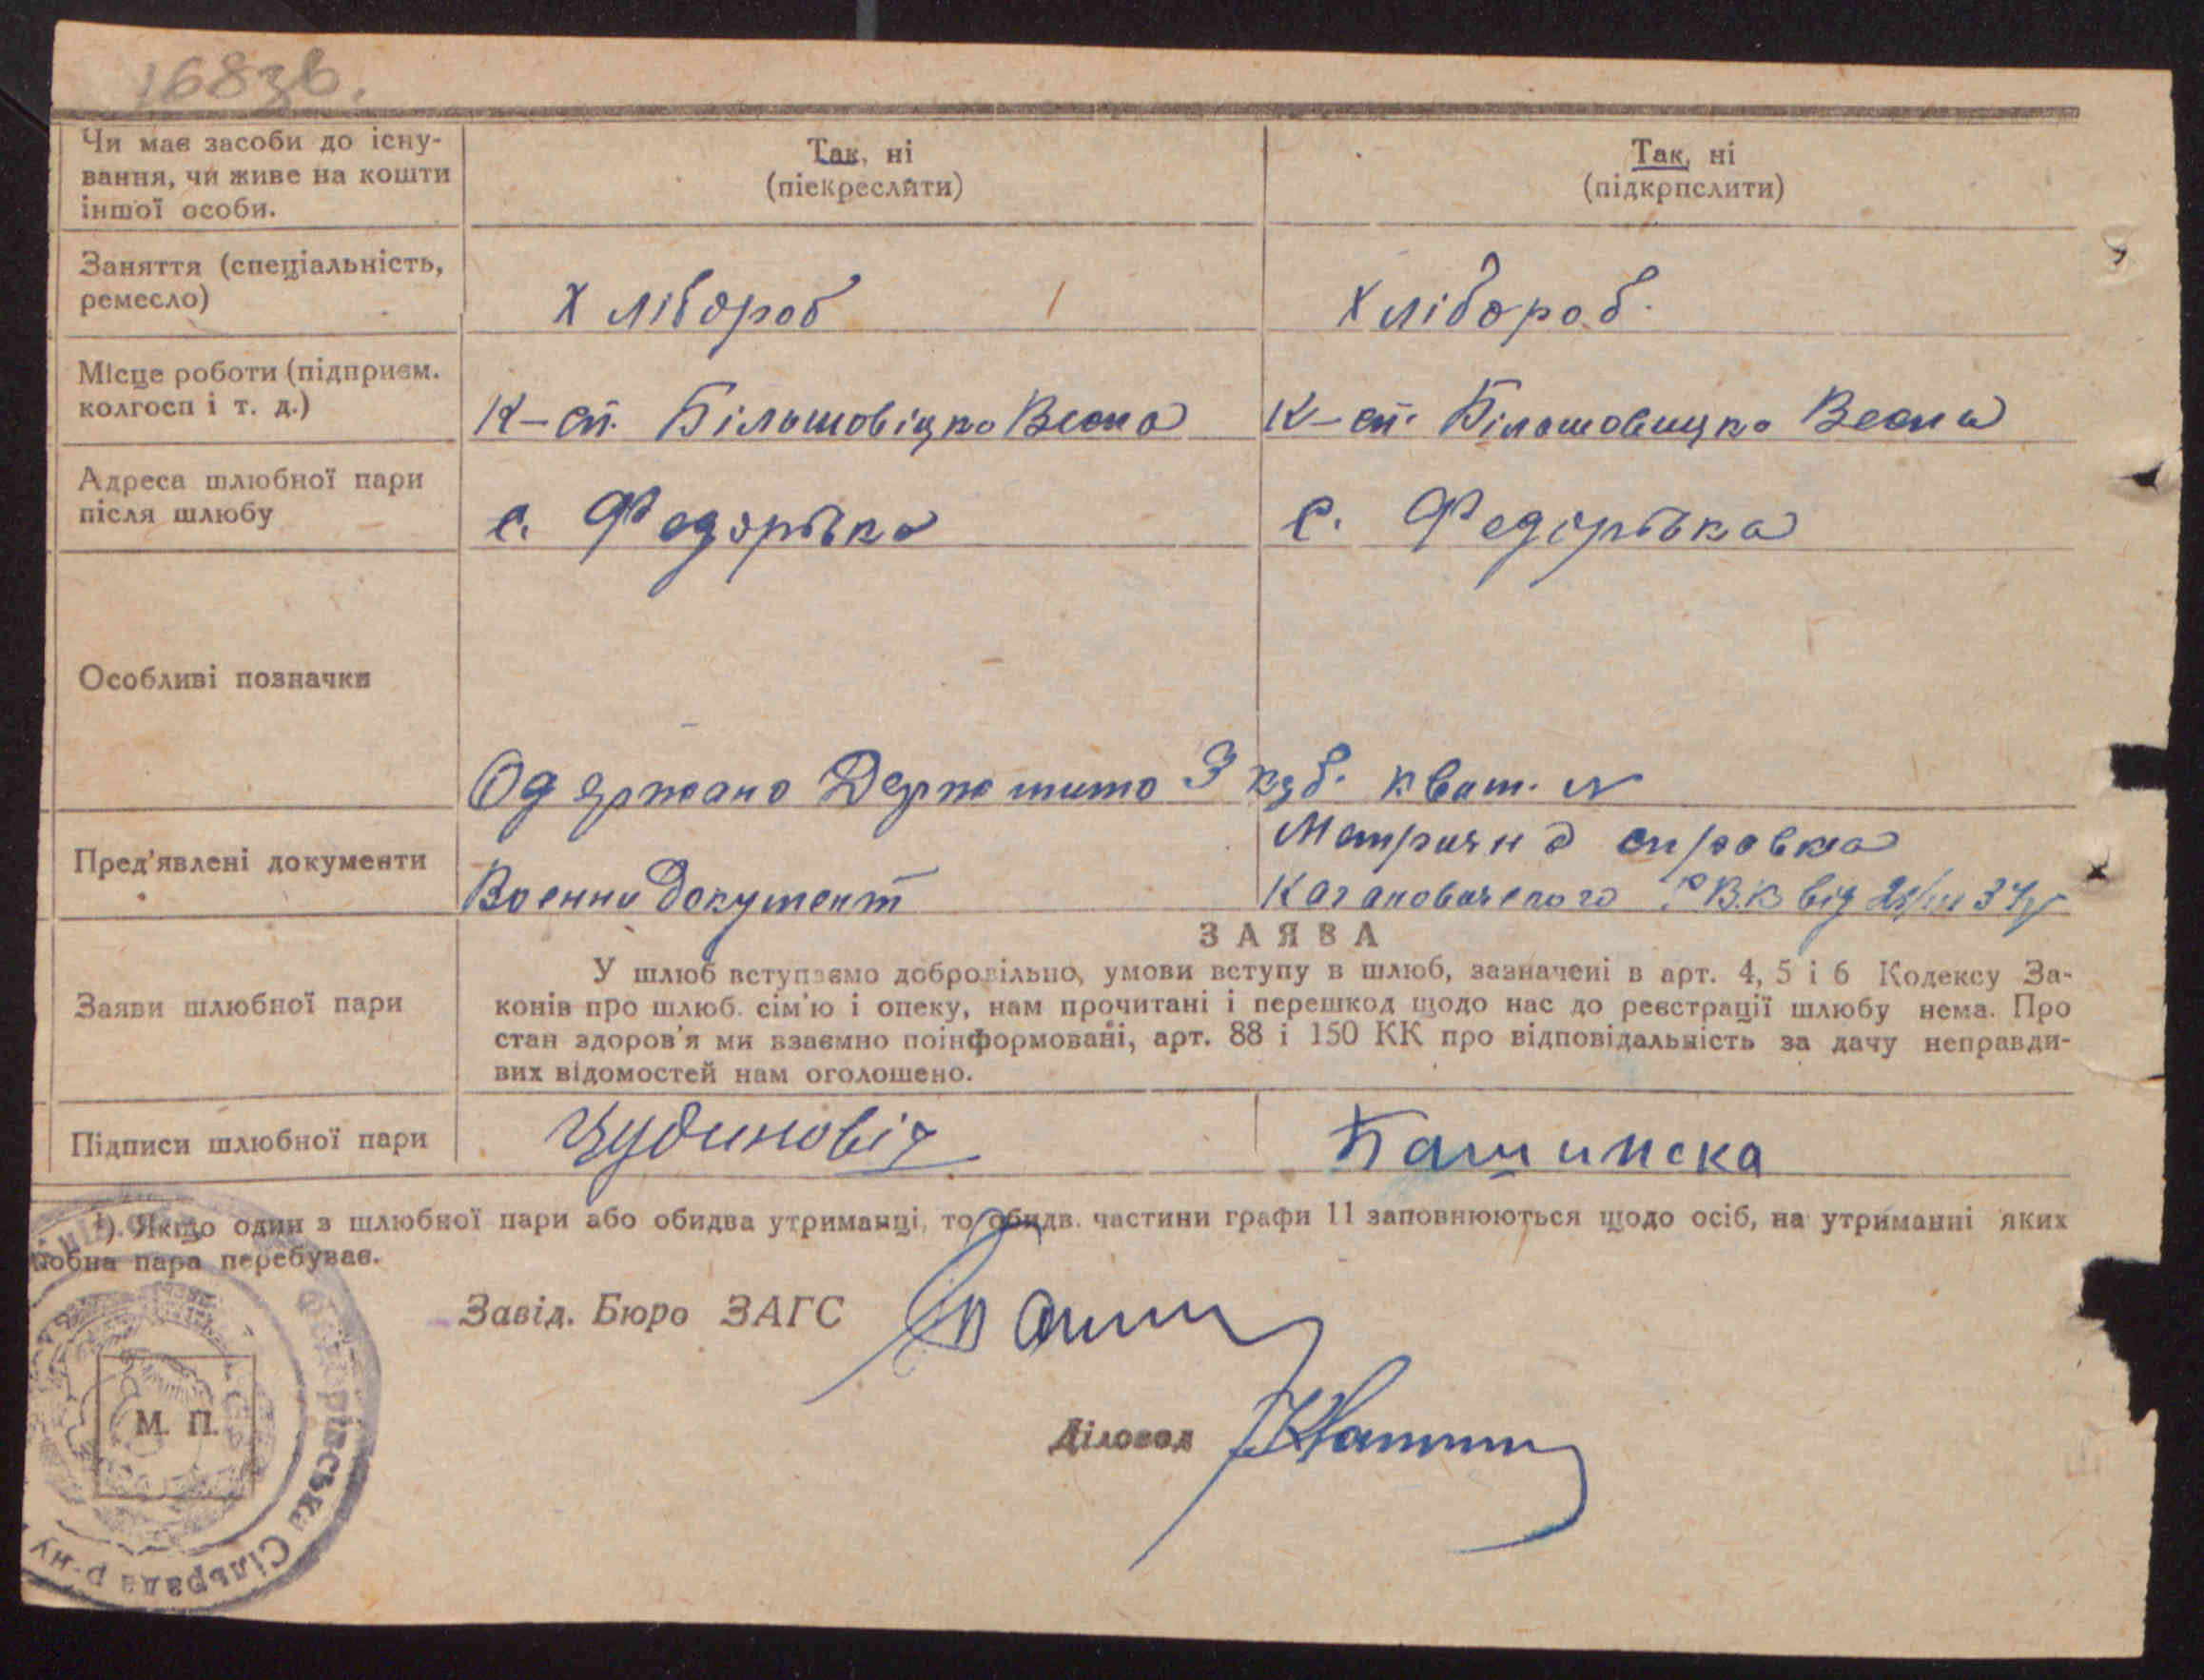 168зв.
Чи має засоби до існу-
вання, чи живе на кошти
іншої особи.
Так, ні
(піекреслити)
Так, ні
(підкрпслити)
Заняття (спеціальність,
ремесло)
Хлібороб
Хлібороб.
Місце роботи (підприєм.
колгосп і т. д.)
К-сп. Більшовіцка Весна
К-сп. Більшовицка Весна
Адреса шлюбної пари
після шлюбу
с. Федорівка
с. Федорівка
Особливі позначки
Одержано Держ мито 3 крб. квит. №
Пред'явлені документи
Военни документ
Метрична справка
Кагановичского Р.В.К від
Заяви шлюбної пари
ЗАЯВА
У шлюб вступаємо добровільно, умови вступу в шлюб, зазначені в арт. 4, 5 і 6 Кодексу За-
конів про шлюб. сім'ю і опеку, нам прочитані і перешкод щодо нас до реєстрації шлюбу нема. Про
стан здоров'я ми взаємно поінформовані, арт. 88 і 150 КК про відповідальність за дачу неправди-
вих відомостей нам оголошено.
Підписи шлюбної пари
Чудиновіч
Башинска
¹). Якщо один з шлюбної пари або обидва утриманці, то обидв. частини графи 11 заповнюються щодо осіб, на утриманні яких
любна пара перебуває.
Завід. Бюро ЗАГС
Діловод
М. П.
Федорівська Сільрада р-ну